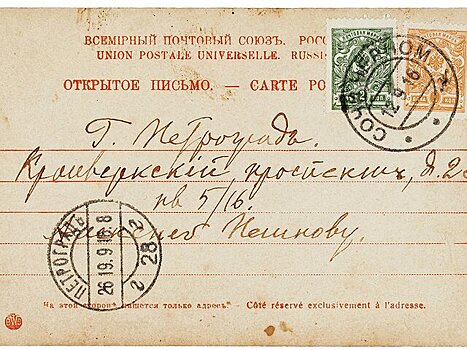 ВСЕМІРНЫЙ ПОЧТОВЫЙ СОЮЗЪ. РОСС
UNION POSTALE UNIVERSELLE. RUSSI
ОТКРЫТОЕ ПИСЬМО. — CARTE PO
СОЧИ ЧЕРНОМ
12 9 16
Г. Петроградъ.
Кронверкскій проспектъ, д. 23
кв 5/16.
Пешкову.
ПЕТРОГРАДЪ
26 19.9 16. 8
28
На этой сторонѣ пишется только адресъ. — Côté réservé exclusivement à l'adresse.